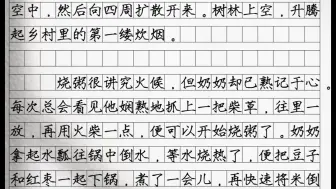 空中，然后向四周扩散开来。树林上空，升腾
起乡村里的第一缕炊烟。
烧粥很讲究火候，但奶奶却已熟记于心。
每次总会看见他娴熟地抓上一把柴草，往里一
放，再用火柴一点，便可以开始烧粥了。奶奶
拿起水瓢往锅中倒水，等水烧热了，便把豆子
和红枣一起下锅，煮了一会儿，再快速将米倒